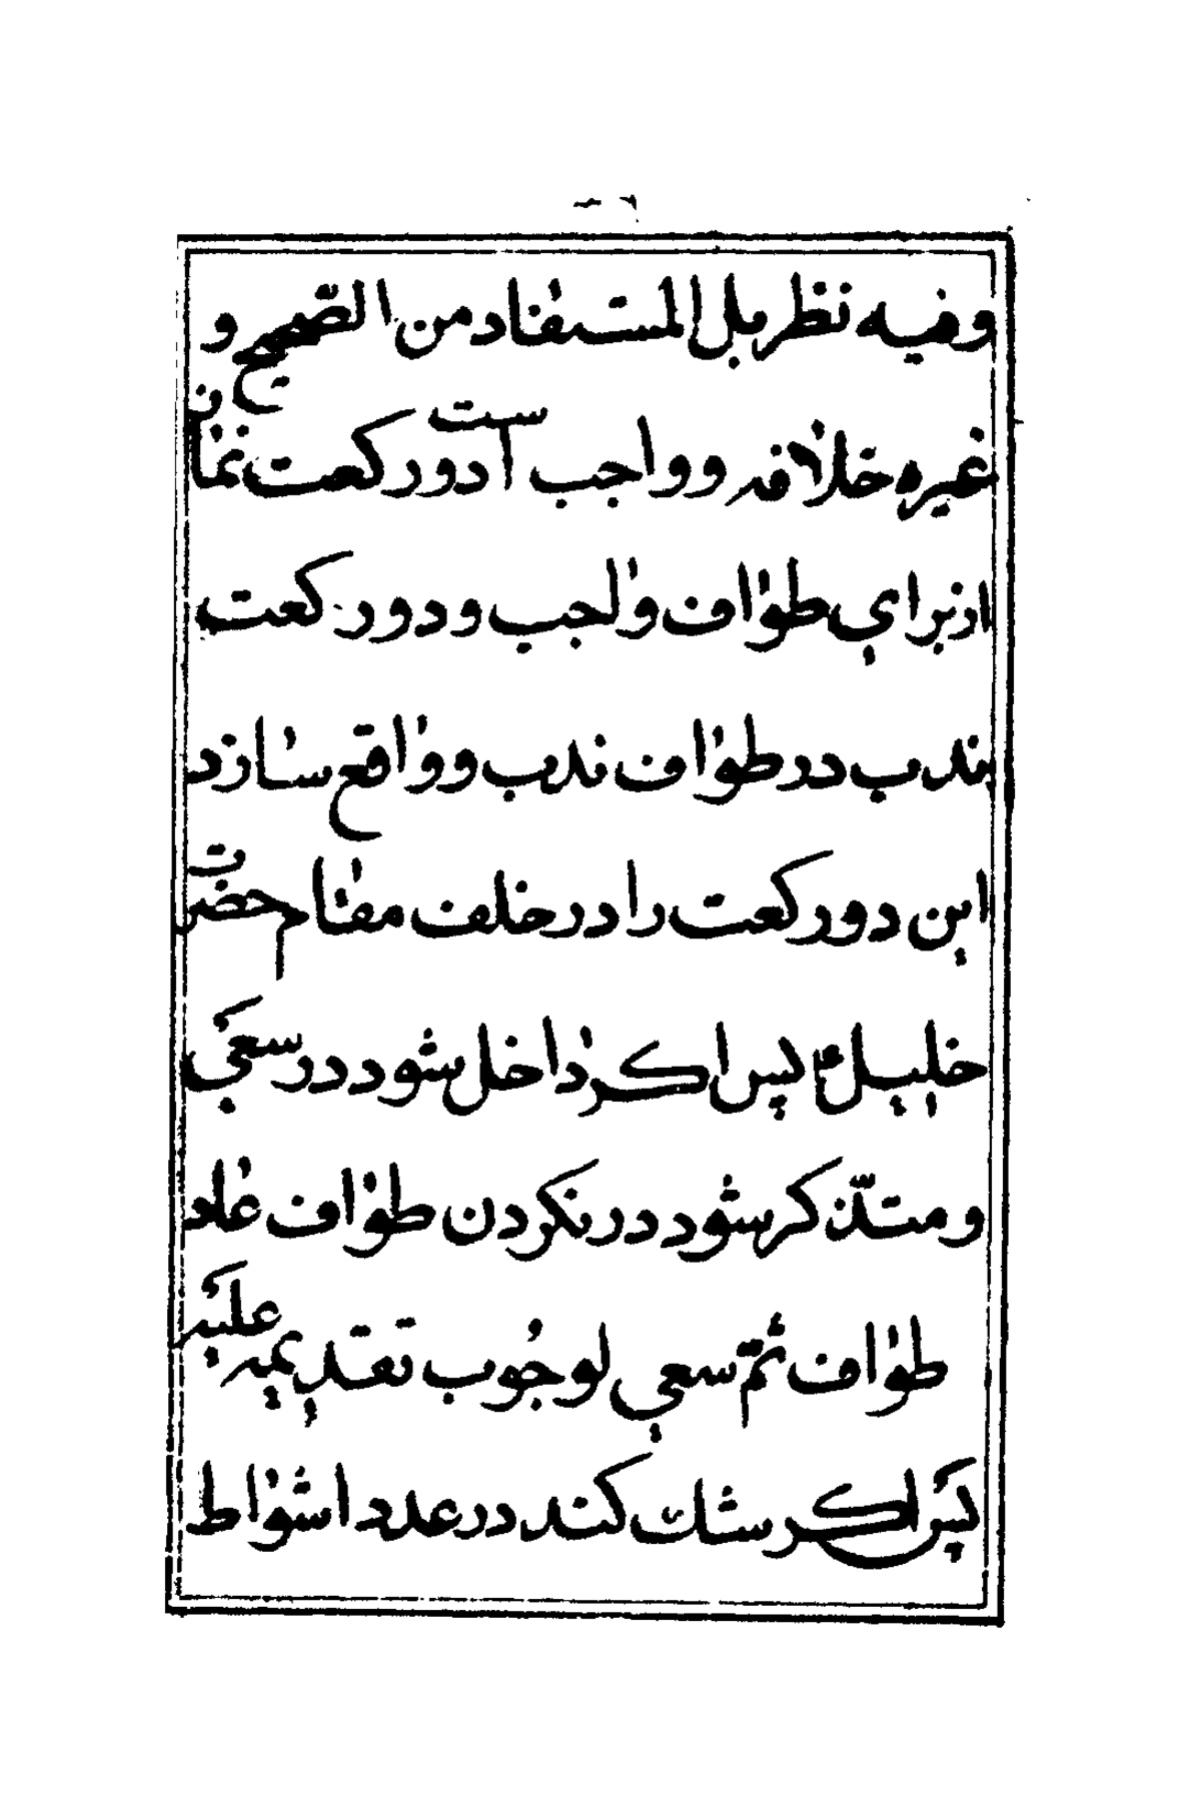 وفيه نظر بل المستفاد من الصحيح و
غيره خلافه و واجب است دو ركعت نماز
از براي طواف واجب و دو ركعت
ندب در طواف ندب و واقع سازد
اين دو ركعت را در خلف مقام حضرت
خليل ع پس اكر داخل شود در سعي
و متذّكر شود در نكردن طواف عاد
طواف ثمّ سعي لوجُوب تقديمه عليه
پس اكر شك كند در عدد اشواط